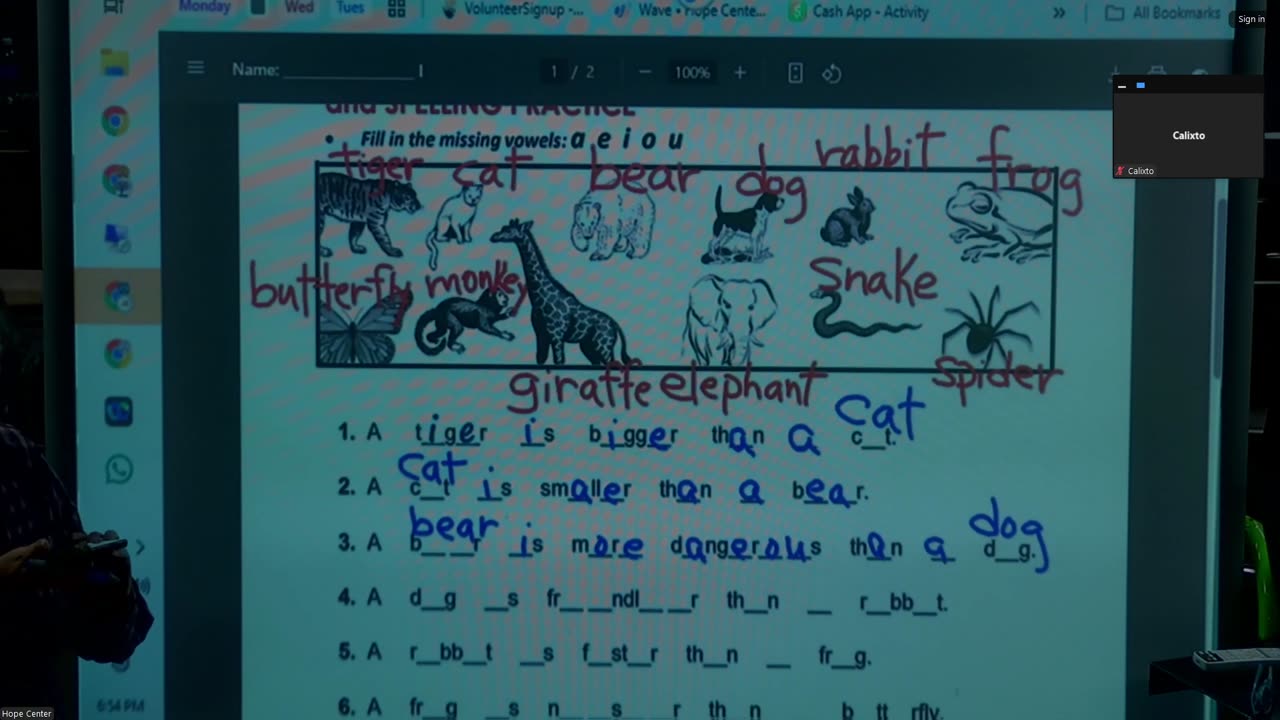 Monday Wed Tues VolunteerSignup -... Wave • Hope Cente... Cash App - Activity » All Bookmarks
Sign in
Name: ____________ 1 / 2 − 100% +
and SPELLING PRACTICE
• Fill in the missing vowels: a e i o u
tiger cat bear dog rabbit frog
butterfly monkey snake
giraffe elephant spider
cat
1. A tiger is bigger than a c__t.
cat
2. A c__t is smaller than a bear.
bear dog
3. A b__ __r is more dangerous than a d__g.
4. A d__g __s fr__ __ndl__ __r th__n __ r__bb__t.
5. A r__bb__t __s f__st__r th__n __ fr__g.
6. A fr__g __s n__ __s__ __r th__n __ b__tt__rfly.
Calixto
Calixto
6:54 PM
Hope Center